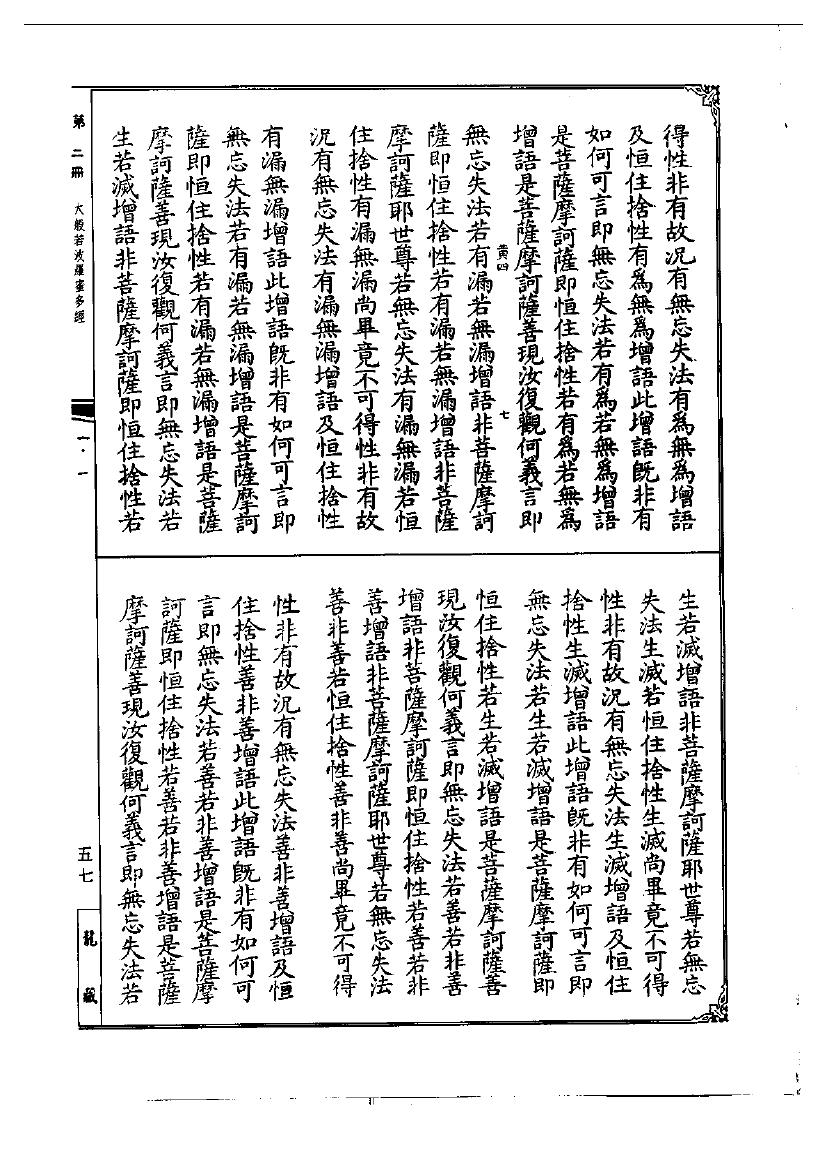 得性非有故況有無忘失法有為無為增語
及恒住捨性有為無為增語此增語既非有
如何可言即無忘失法若有為若無為增語
是菩薩摩訶薩即恒住捨性若有為若無為
增語是菩薩摩訶薩善現汝復觀何義言即
黄四
七
無忘失法若有漏若無漏增語非菩薩摩訶
薩即恒住捨性若有漏若無漏增語非菩薩
摩訶薩耶世尊若無忘失法有漏無漏若恒
住捨性有漏無漏尚畢竟不可得性非有故
況有無忘失法有漏無漏增語及恒住捨性
有漏無漏增語此增語既非有如何可言即
無忘失法若有漏若無漏增語是菩薩摩訶
薩即恒住捨性若有漏若無漏增語是菩薩
摩訶薩善現汝復觀何義言即無忘失法若
生若滅增語非菩薩摩訶薩即恒住捨性若
生若滅增語非菩薩摩訶薩耶世尊若無忘
失法生滅若恒住捨性生滅尚畢竟不可得
性非有故況有無忘失法生滅增語及恒住
捨性生滅增語此增語既非有如何可言即
無忘失法若生若滅增語是菩薩摩訶薩即
恒住捨性若生若滅增語是菩薩摩訶薩善
現汝復觀何義言即無忘失法若善若非善
增語非菩薩摩訶薩即恒住捨性若善若非
善增語非菩薩摩訶薩耶世尊若無忘失法
善非善若恒住捨性善非善尚畢竟不可得
性非有故況有無忘失法善非善增語及恒
住捨性善非善增語此增語既非有如何可
言即無忘失法若善若非善增語是菩薩摩
訶薩即恒住捨性若善若非善增語是菩薩
摩訶薩善現汝復觀何義言即無忘失法若
第二冊 大般若波羅蜜多經
一·一
五七
龍藏